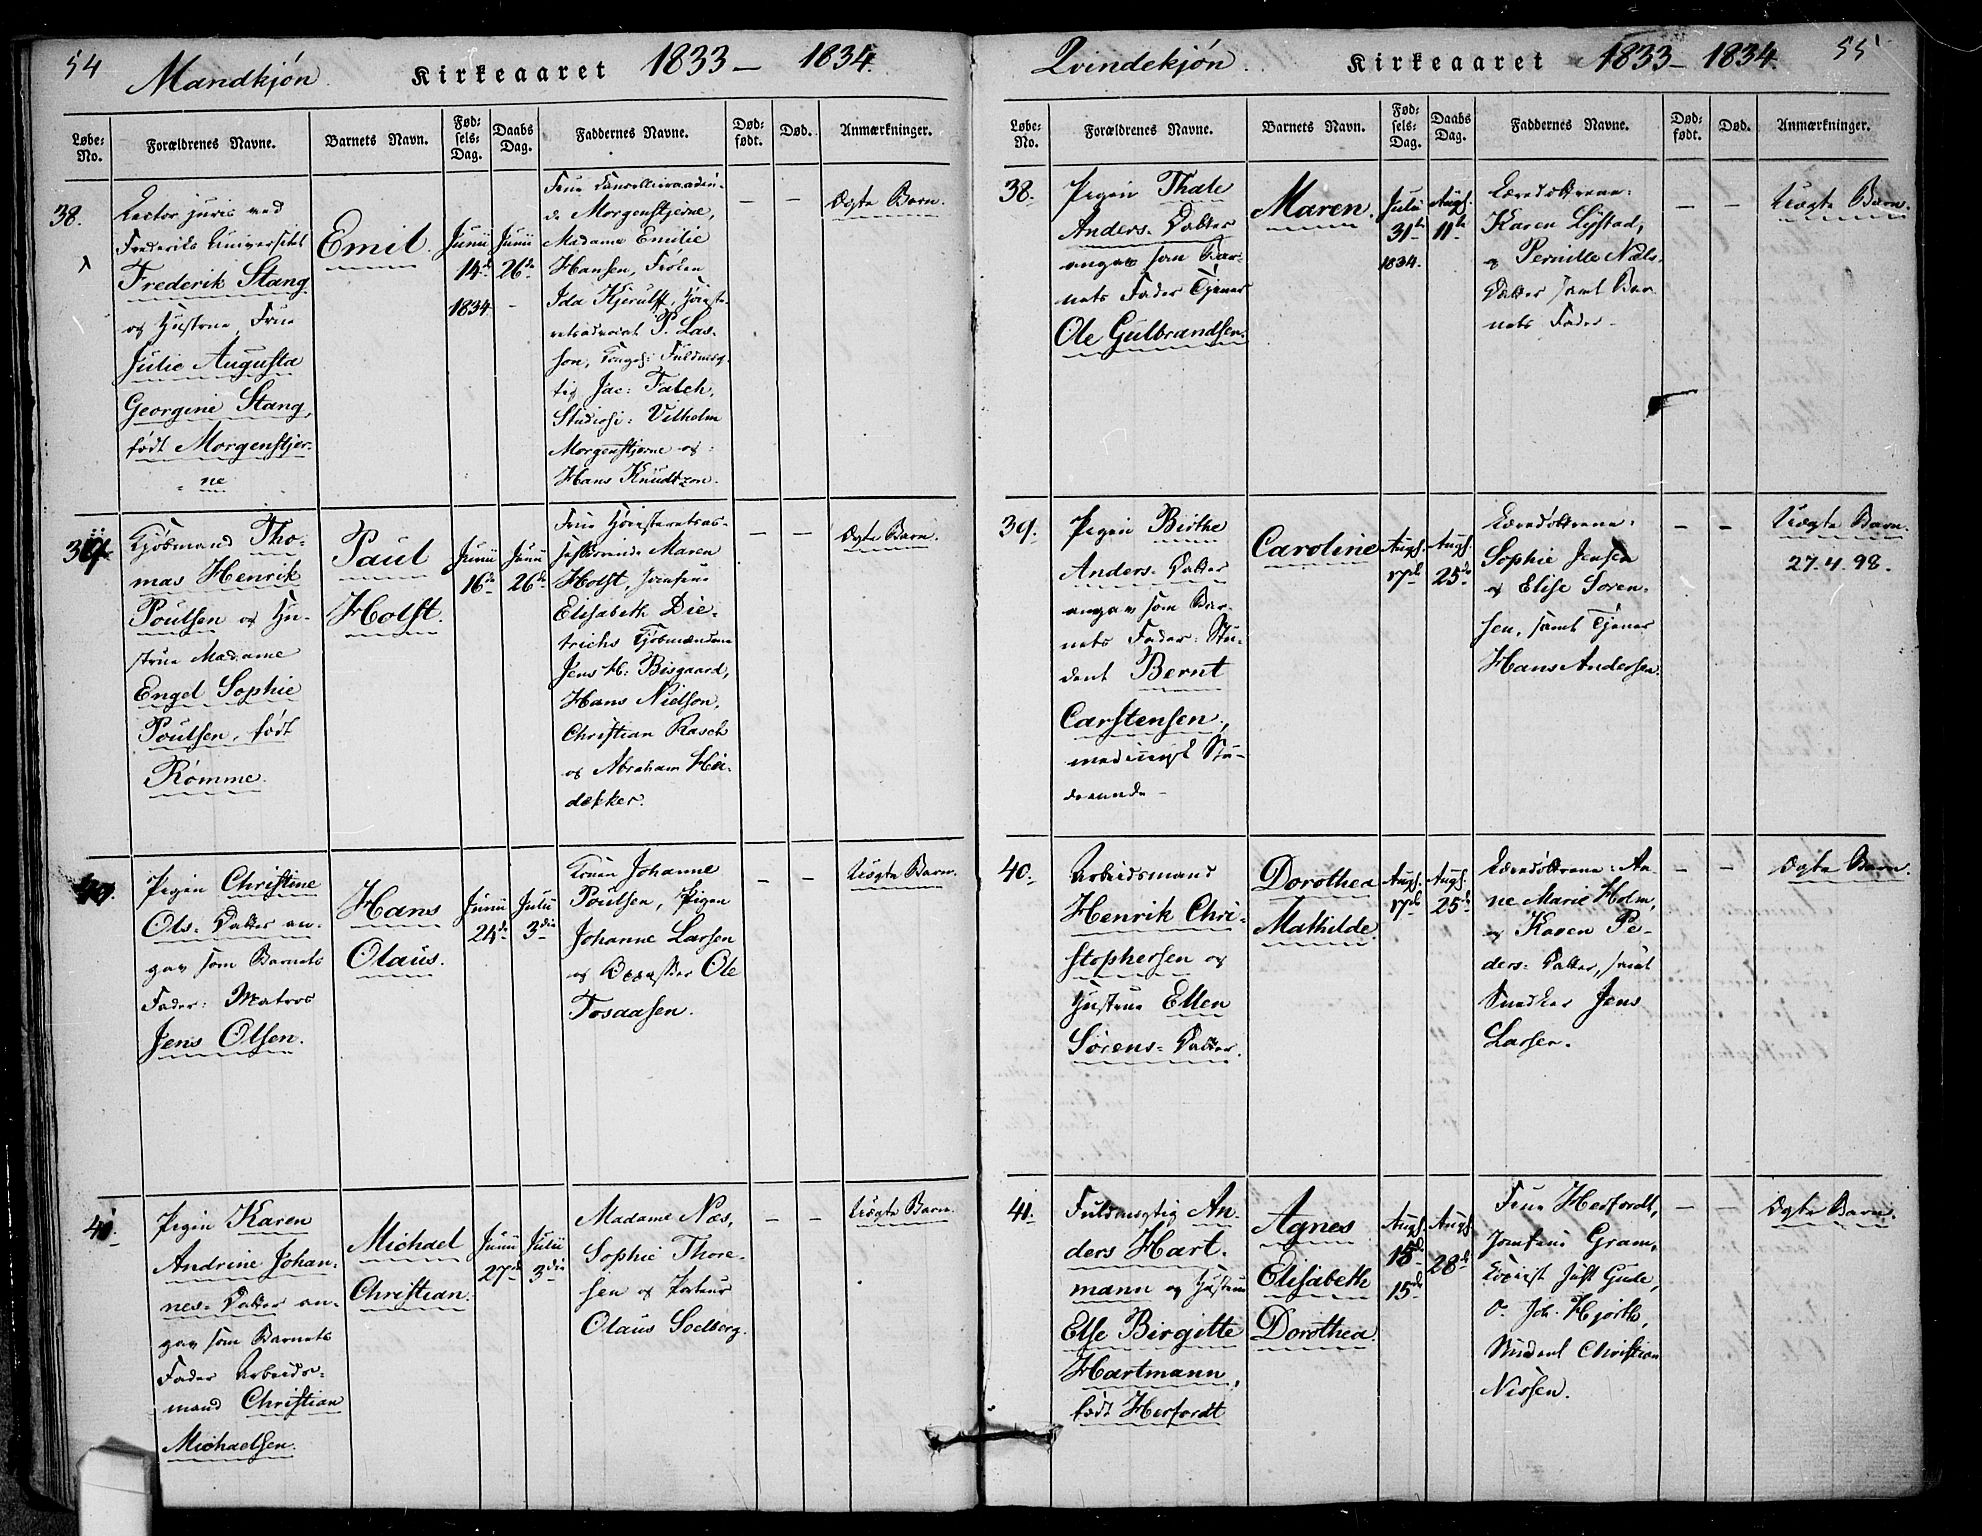 54
Mandkjøn.
Kirkeaaret 1833 – 1834.
Løbe-No.
Forældrenes Navne.
Barnets Navn.
Fødsels-Dag.
Daabs Dag.
Faddernes Navne.
Død-født.
Død.
Anmærkninger.
38.
Lector juris ved
Frederiks Universitet
Frederik Stang
og Hustrue, Frue
Julie Augusta
Georgine Stang,
født Morgenstjer-
ne
Emil.
Junii
14de
1834
Junii
26de
Frue Cancelliraadin-
de Morgenstjerne,
Madame Emilie
Hansen, Frøken
Ida Kjerulff, Høieste-
retsadvocat P. Las-
son, Conges: Fuldmæg-
tig Jac: Falch,
Studiosi: Vilhelm
Morgenstjerne og
Hans Knudtzon.
–
–
Ægte Barn.
39.
Kjøbmand Tho-
mas Henrik
Poulsen og Hu-
strue Madame
Engel Sophie
Poulsen, født
Rømme.
Paul
Holst.
Junii
16de
Junii
26de
Frue Høiesteretsas-
sessorinde Maren
Holst, Jomfrue
Elisabeth Die-
trichs Kjøbmændene
Jens M: Bisgaard,
Hans Nielson,
Christian Rasch
og Abraham Hu-
dekker.
–
–
Ægte Barn.
40.
Pigen Christine
Ols-Datter an-
gav som Barnets
Fader: Matros
Jens Olsen.
Hans
Olaus.
Junii
24de
Julii
3die
Konen Johanne
Poulsen, Pigen
Johanne Larsen
og Ole
Tosaasen.
–
–
Uægte Barn.
41.
Pigen Karen
Andrine Johan-
nes-Datter an-
gav som Barnets
Fader Arbeids-
mand Christian
Michaelsen.
Michael
Christian.
Junii
27de
Julii
3die
Madame Næs,
Sophie Thore-
sen og
Olaus Soelberg.
–
–
Uægte Barn.
Qvindekjøn.
Kirkeaaret 1833 – 1834.
55
Løbe-No.
Forældrenes Navne.
Barnets Navn.
Fødsels-Dag.
Daabs Dag.
Faddernes Navne.
Død-født.
Død.
Anmærkninger.
38.
Pigen Thale
Anders-Datter
angav som Bar-
nets Fader Tjener
Ole Gulbrandsen.
Maren.
Julii
31te
1834.
Augs.
11te
Kaaren Lystad,
og Pernille Nils-
Datter samt Bar-
nets Fader.
–
–
Uægte Barn.
39.
Pigen Birthe
Anders-Datter
angav som Bar-
nets Fader: Stu-
dent Bernt
Carstensen,
medicinsk Stu-
derende
Caroline
Augs.
17de
Augs.
25de
Sophie Jensen
og Elise Soren-
sen, samt Tjener
Hans Andersen.
–
–
Uægte Barn.
27.4.98.
40.
Arbeidsmand
Henrik Chri-
stophersen og
Hustrue Ellen
Sørens-Datter.
Dorothea
Mathilde.
Augs.
17de
Augs.
25de
An-
ne Marie Holm,
og Karen Pe-
ders-Datter, samt
Snedker Jens
Larsen.
–
–
Ægte Barn.
41.
Fuldmægtig An-
ders Hart-
mann og Hustrue
Else Birgitte
Hartmann,
født Herfordt
Agnes
Elisabeth
Dorothea.
Augs.
15de
15de
Augs.
28de
Frue Herfordt,
Jomfrue Gram,
Copist Just Gude,
O. Joh. Hjorth,
Student Christian
Nissen.
–
–
Ægte Barn.